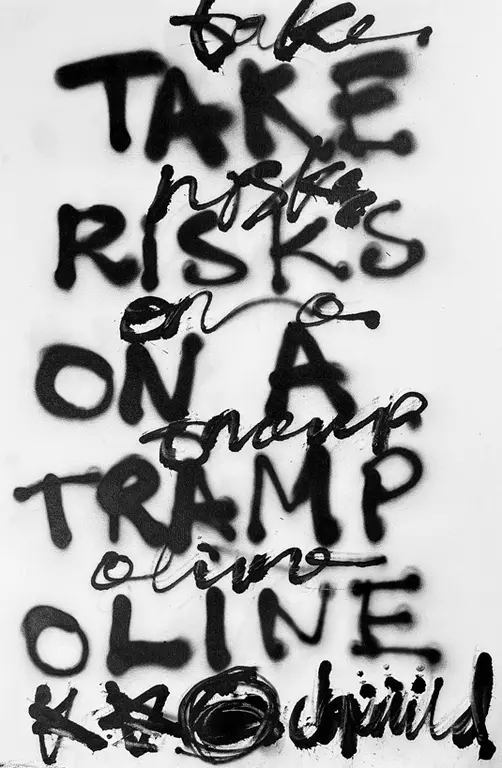 take
TAKE
risks
RISKS
on a
ON A
tramp
TRAMP
oline
OLINE